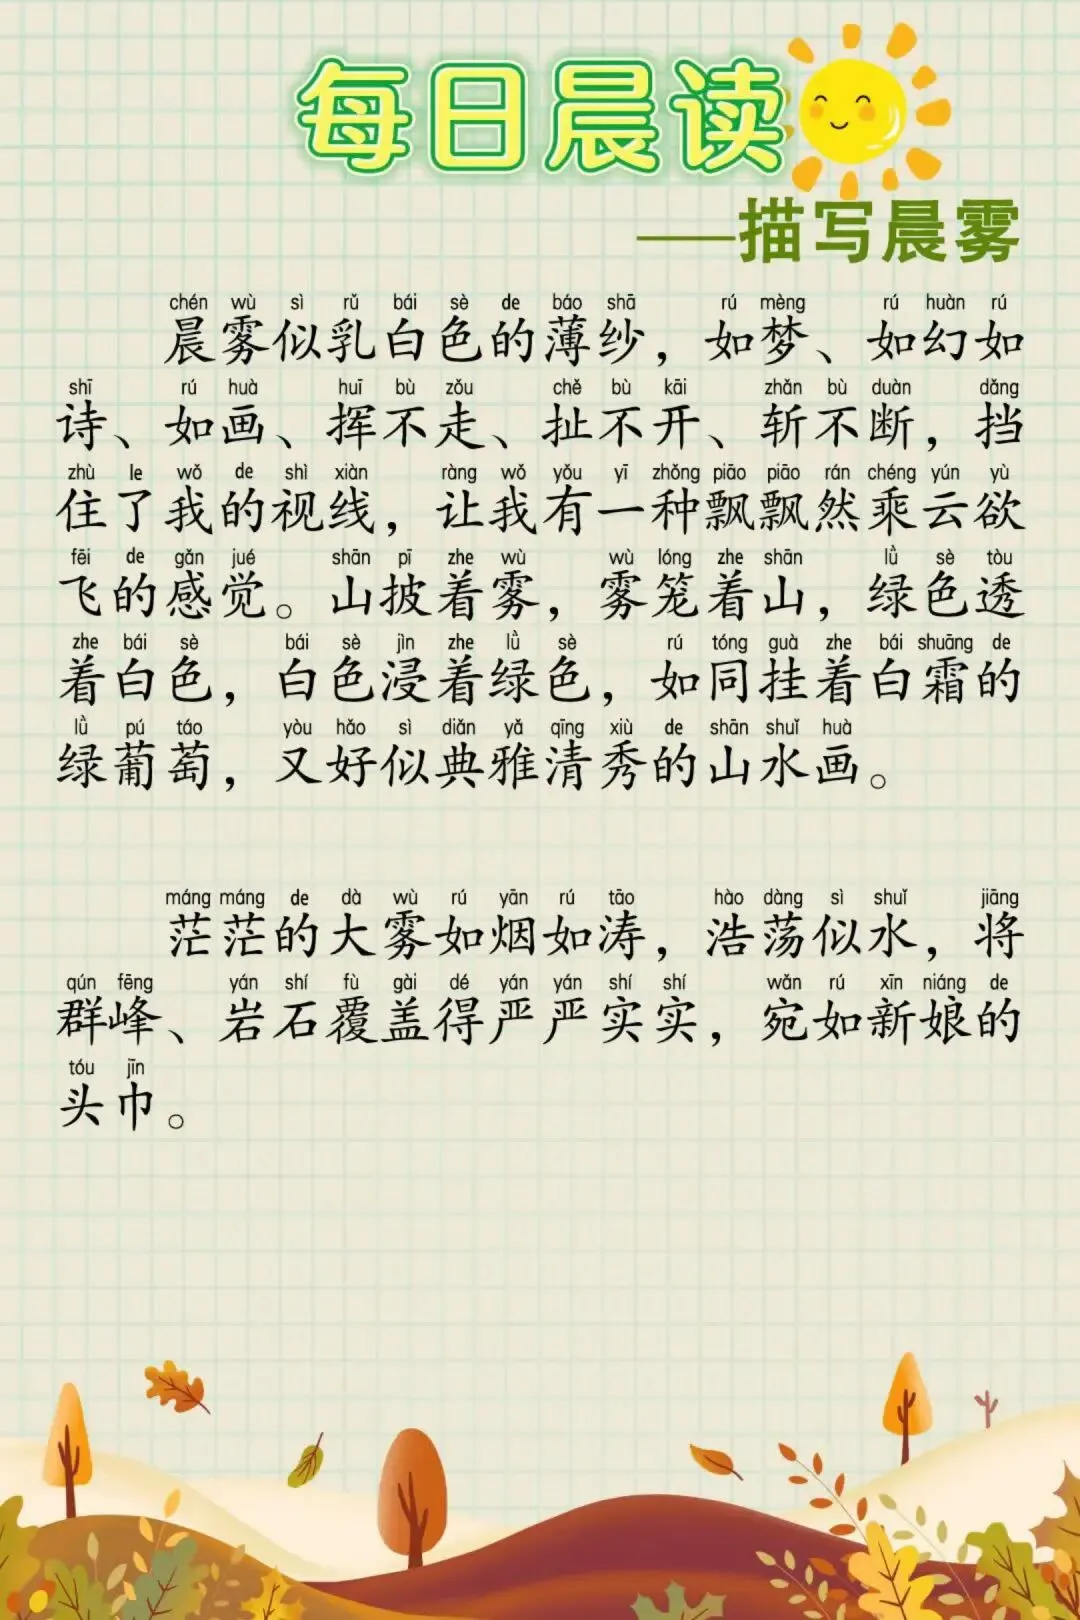 每日晨读
——描写晨雾
chén wù sì rǔ bái sè de báo shā rú mèng rú huàn rú
晨雾似乳白色的薄纱，如梦、如幻如
shī rú huà huī bù zǒu chě bù kāi zhǎn bù duàn dǎng
诗、如画、挥不走、扯不开、斩不断，挡
zhù le wǒ de shì xiàn ràng wǒ yǒu yī zhǒng piāo piāo rán chéng yún yù
住了我的视线，让我有一种飘飘然乘云欲
fēi de gǎn jué shān pī zhe wù wù lóng zhe shān lǜ sè tòu
飞的感觉。山披着雾，雾笼着山，绿色透
zhe bái sè bái sè jìn zhe lǜ sè rú tóng guà zhe bái shuāng de
着白色，白色浸着绿色，如同挂着白霜的
lǜ pú táo yòu hǎo sì diǎn yǎ qīng xiù de shān shuǐ huà
绿葡萄，又好似典雅清秀的山水画。
máng máng de dà wù rú yān rú tāo hào dàng sì shuǐ jiāng
茫茫的大雾如烟如涛，浩荡似水，将
qún fēng yán shí fù gài dé yán yán shí shí wǎn rú xīn niáng de
群峰、岩石覆盖得严严实实，宛如新娘的
tóu jīn
头巾。